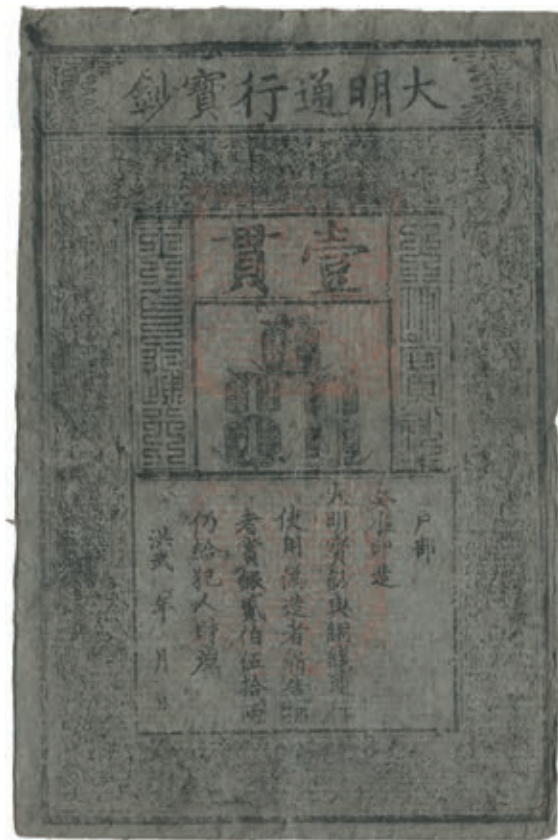 大明通行寶鈔
壹貫
大明寶鈔
天下通行
户部
奏准印造
大明寶鈔與銅錢通行
使用偽造者斬告捕
者賞銀貳伯伍拾兩
仍給犯人財產
洪武 年 月 日